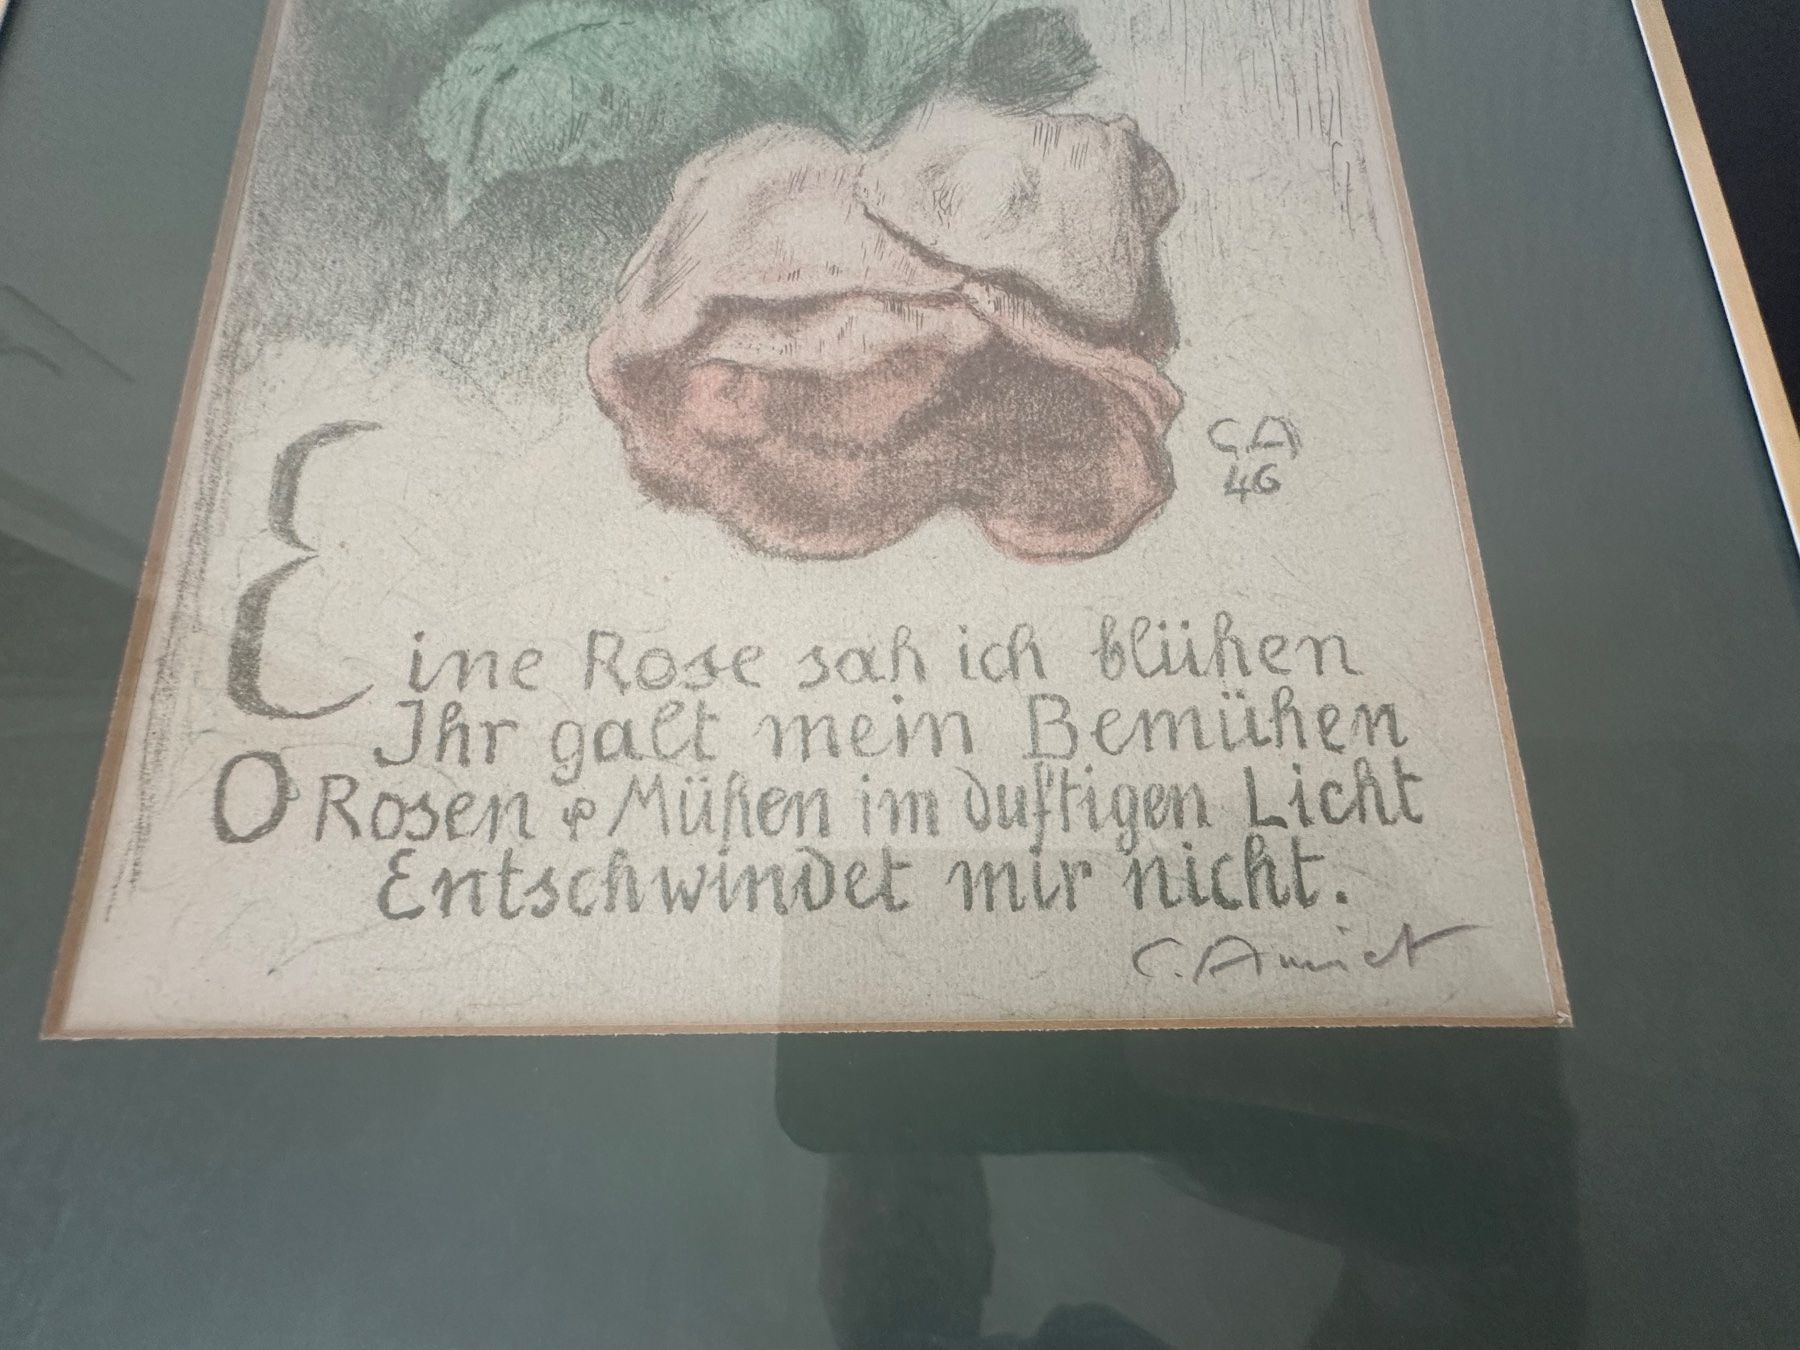 C.A
46
Eine Rose sah ich blühen
Ihr galt mein Bemühen
O Rosen & Mühen im duftigen Licht
Entschwindet mir nicht.
C. Amiet